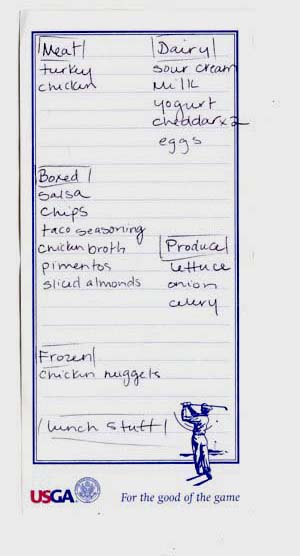 Meat
turkey
chicken
Dairy
sour cream
milk
yogurt
cheddar x 2
eggs
Boxed
salsa
chips
taco seasoning
chicken broth
pimentos
sliced almonds
Produce
lettuce
onion
celery
Frozen
chicken nuggets
lunch stuff
USGA
For the good of the game